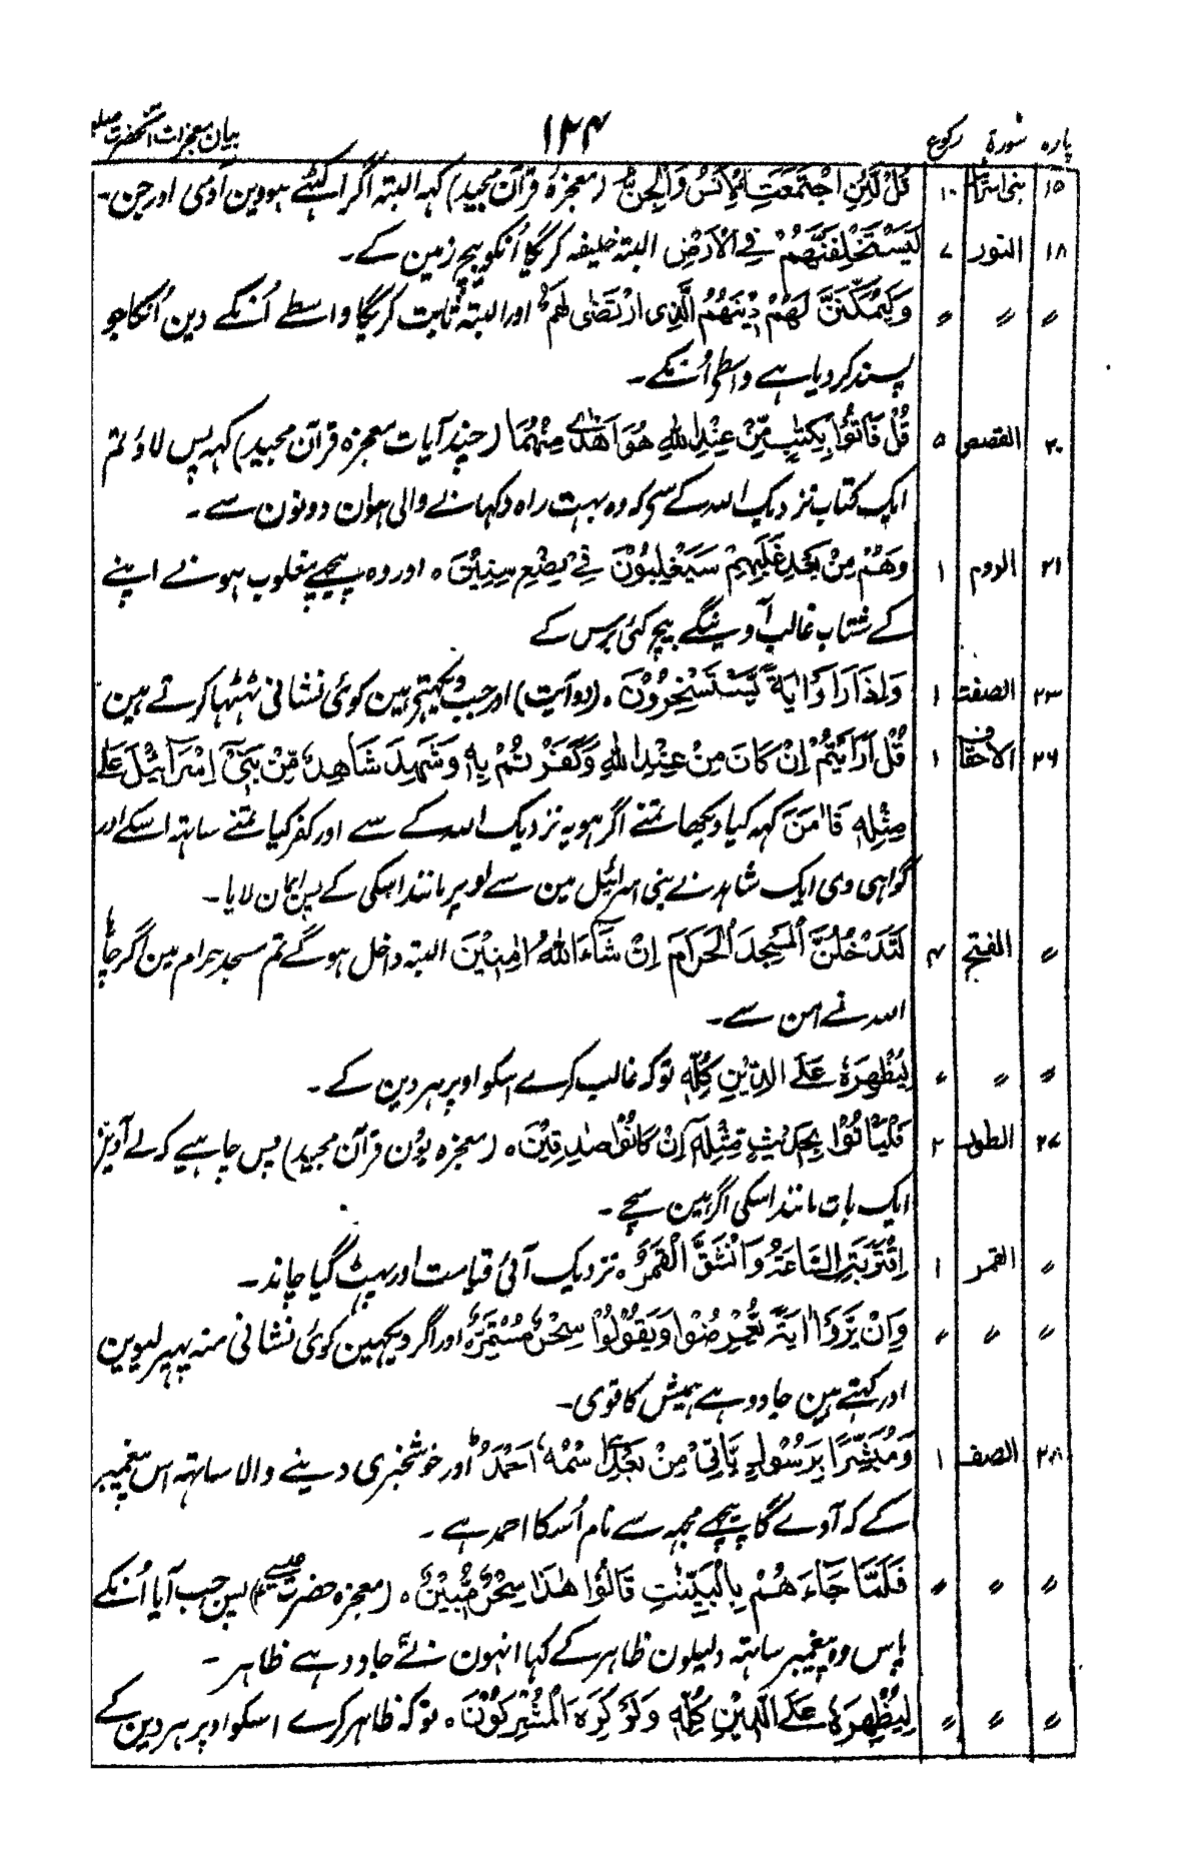 پارہ سورۃ رکوع ۱۲۴ بیان معجزات آنحضرت صلعم
۱۵ بنی اسرائیل ۱۰ قُلْ لَئِنِ اجْتَمَعَتِ الْاِنْسُ وَالْجِنُّ (معجزۂ قرآن مجید) کہہ البتہ اگر اکٹھے ہووین آدمی اور جن۔
۱۸ النور ۷ لَیَسْتَخْلِفَنَّهُمْ فِی الْاَرْضِ البتہ خلیفہ کریگا اُنکو بیچ زمین کے۔
〃 〃 〃 وَلَیُمَکِّنَنَّ لَهُمْ دِیْنَهُمُ الَّذِی ارْتَضٰی لَهُمْ اور البتہ ثابت کریگا واسطے اُنکے دین اُنکا جو
پسند کر دیا ہے واسطے اُنکے۔
۲۰ القصص ۵ قُلْ فَاْتُوْا بِکِتٰبٍ مِّنْ عِنْدِ اللّٰهِ هُوَ اَهْدٰی مِنْهُمَا (چند آیات معجزہ قرآن مجید) کہہ پس لاؤ تم
ایک کتاب نزدیک اللہ کے سی کہ وہ بہت راہ دکہانے والی ہو ان دونون سے۔
۲۱ الروم ۱ وَهُمْ مِنْ بَعْدِ غَلَبِهِمْ سَیَغْلِبُوْنَ فِیْ بِضْعِ سِنِیْنَ ۰ اور وہ پیچھے مغلوب ہونے اپنے
کے شتاب غالب آوینگے بیچ کئی برس کے
۲۳ الصفت ۱ وَاِذَا رَاَوْا اٰیَةً یَّسْتَسْخِرُوْنَ ۰ (دو آیت) اور جب دیکہتے ہین کوئی نشانی ٹھٹھا کرتے ہین
۲۶ الاحقاف ۱ قُلْ اَرَاَیْتُمْ اِنْ کَانَ مِنْ عِنْدِ اللّٰهِ وَکَفَرْتُمْ بِهٖ وَشَهِدَ شَاهِدٌ مِّنْ بَنِیْ اِسْرَآئِیْلَ عَلٰی
مِثْلِهٖ فَاٰمَنَ کہہ کیا دیکھا تمنے اگر ہو یہ نزدیک اللہ کے سے اور کفر کیا تمنے ساتہ اسکے اور
گواہی دی ایک شاہد نے بنی اسرائیل مین سے اوپر مانند اسکی کے پس ایمان لایا۔
〃 الفتح ۴ لَتَدْخُلُنَّ الْمَسْجِدَ الْحَرَامَ اِنْ شَآءَ اللّٰهُ اٰمِنِیْنَ البتہ داخل ہوگے تم مسجد حرام مین اگر چاہا
اللہ نے امن سے۔
〃 〃 〃 لِیُظْهِرَهٗ عَلَی الدِّیْنِ کُلِّهٖ توکہ غالب کرے اسکو اوپر ہر دین کے۔
۲۷ الطور ۲ فَلْیَاْتُوْا بِحَدِیْثٍ مِّثْلِهٖٓ اِنْ کَانُوْا صٰدِقِیْنَ ۰ (معجزہ بوُن قرآن مجید) پس چاہیے کہ لے آوین
ایک بات مانند اسکی اگر ہین سچے۔
〃 القمر ۱ اِقْتَرَبَتِ السَّاعَةُ وَانْشَقَّ الْقَمَرُ ۰ نزدیک آئی قیامت اور پہٹ گیا چاند۔
〃 〃 〃 وَاِنْ یَّرَوْا اٰیَةً یُّعْرِضُوْا وَیَقُوْلُوْا سِحْرٌ مُّسْتَمِرٌّ اور اگر دیکہین کوئی نشانی منہ پہیر لیوین
اور کہتے ہین جادو ہے ہمیش کا قوی۔
۲۸ الصف ۱ وَمُبَشِّرًا بِرَسُوْلٍ یَّاْتِیْ مِنْ بَعْدِی اسْمُهٗ اَحْمَدُ اور خوشخبری دینے والا ساتہ اس پیغمبر
کے کہ آوے گا پیچھے مجہہ سے نام اُسکا احمد ہے۔
〃 〃 〃 فَلَمَّا جَآءَهُمْ بِالْبَیِّنٰتِ قَالُوْا هٰذَا سِحْرٌ مُّبِیْنٌ ۰ (معجزہ حضرت عیسیٰؑ) پس جب آیا اُنکے
پاس وہ پیغمبر ساتہ دلیلون ظاہر کے کہا انہون نے جادو ہے ظاہر۔
〃 〃 〃 لِیُظْهِرَهٗ عَلَی الدِّیْنِ کُلِّهٖ وَلَوْ کَرِهَ الْمُشْرِکُوْنَ ۰ توکہ ظاہر کرے اسکو اوپر ہر دین کے